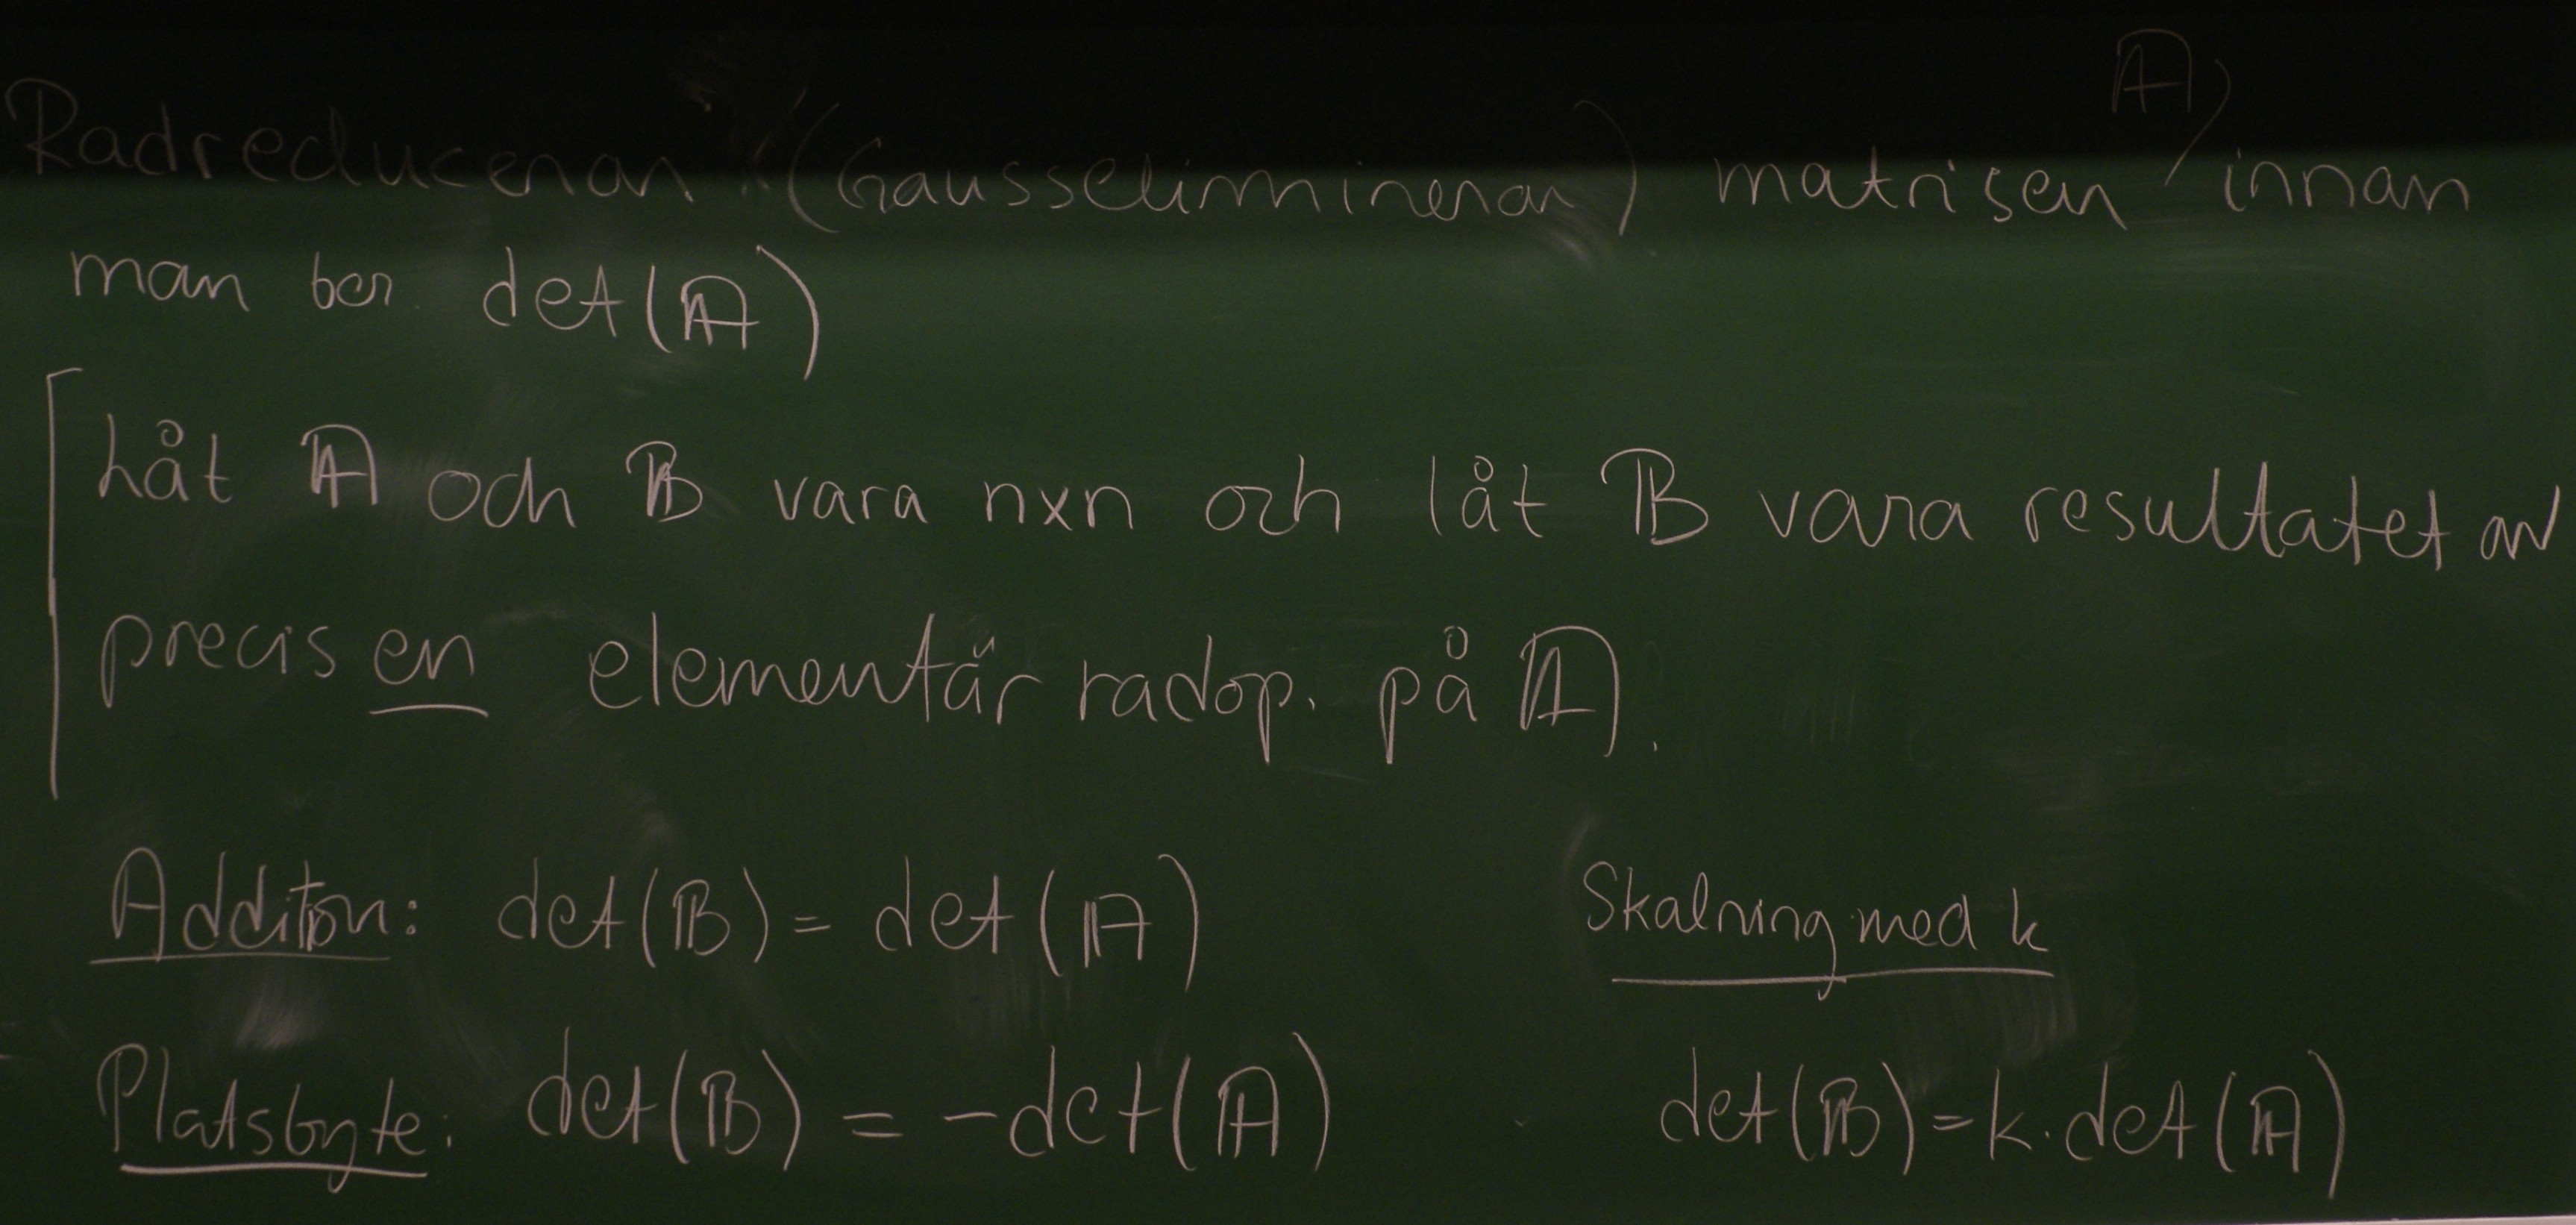 Radreduceran (Gausselimineran) matrisen A, innan
man ber. det(A)
Låt A och B vara nxn och låt B vara resultatet av
precis en elementär radop. på A.
Addition: det(B) = det(A)
Skalning med k
Platsbyte: det(B) = -det(A)
det(B) = k·det(A)